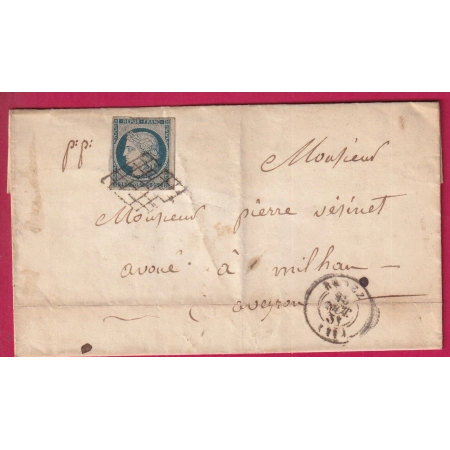 REPUB. FRANC.
p: p:
Monsieur
Monsieur pierre vézinet
avoué à milhau
aveyron
RODEZ